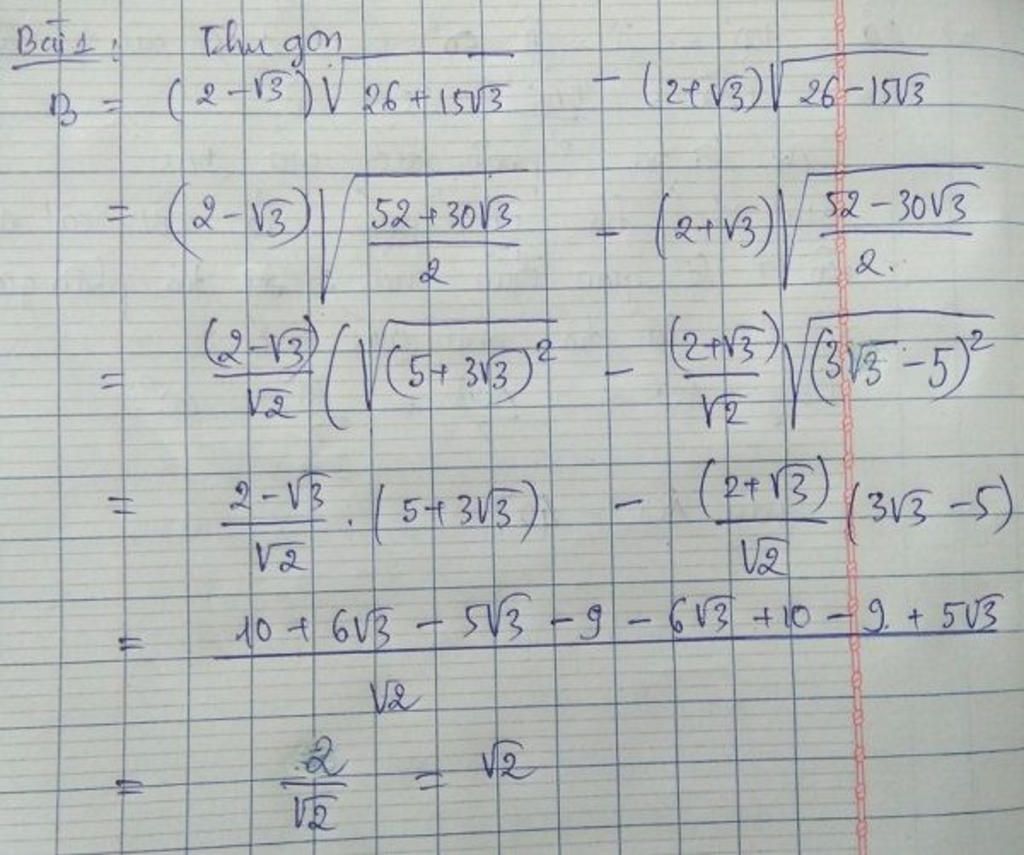 Bài 1: Thu gọn
B = (2 - √3)√(26 + 15√3) - (2 + √3)√(26 - 15√3)
= (2 - √3)√((52 + 30√3)/2) - (2 + √3)√((52 - 30√3)/2.)
= (2 - √3)/√2 (√((5 + 3√3)²) - (2 + √3)/√2 √((3√3 - 5)²)
= (2 - √3)/√2 . (5 + 3√3) - (2 + √3)/√2 (3√3 - 5)
= (10 + 6√3 - 5√3 - 9 - 6√3 + 10 - 9 + 5√3)/√2
= 2/√2 = √2